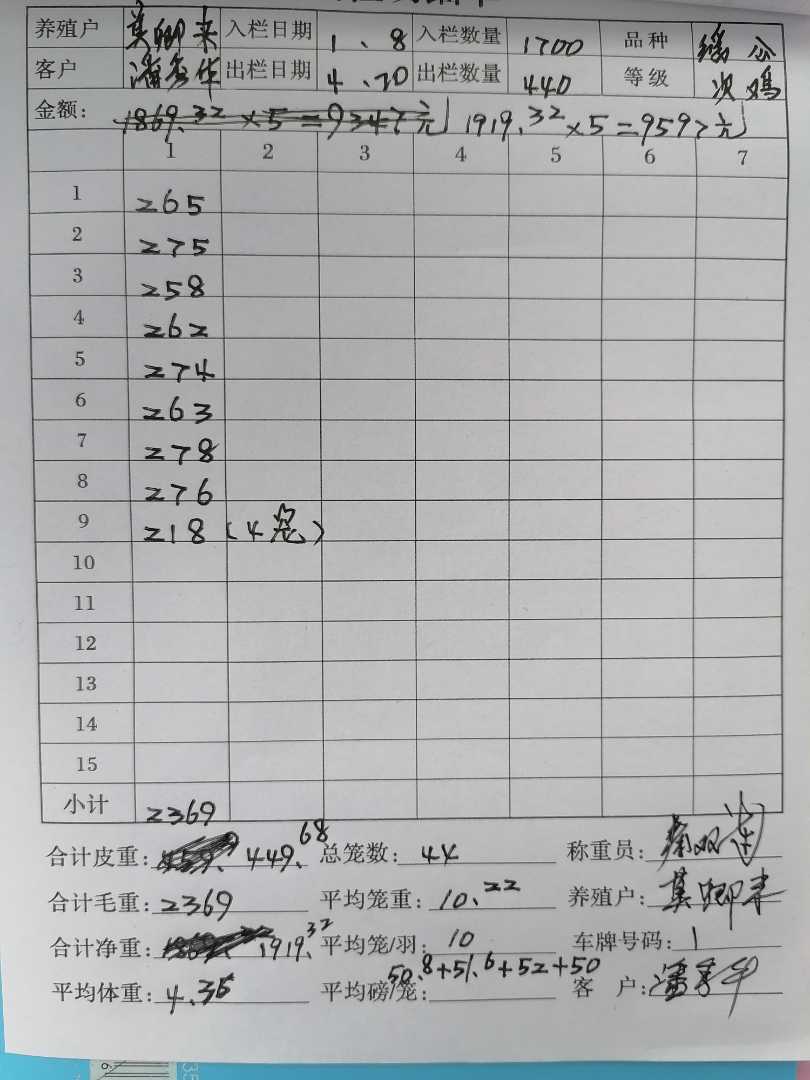 养殖户 莫卿来 入栏日期 1、8 入栏数量 1700 品种
客户 出栏日期 4、20 出栏数量 440 等级 次鸡
金额: 1869.32×5=9347元 1919.32×5=9597元
1 2 3 4 5 6 7
1 265
2 275
3 258
4 262
5 274
6 263
7 278
8 276
9 218 (4笼)
10
11
12
13
14
15
小计 2369
合计皮重: 449.68 总笼数: 44 称重员:
合计毛重: 2369 平均笼重: 10.22 养殖户: 莫卿来
合计净重: 1919.32 平均笼/羽: 10 车牌号码: 1
平均体重: 4.36 平均磅/笼: 50.8+51.6+52+50 客 户: